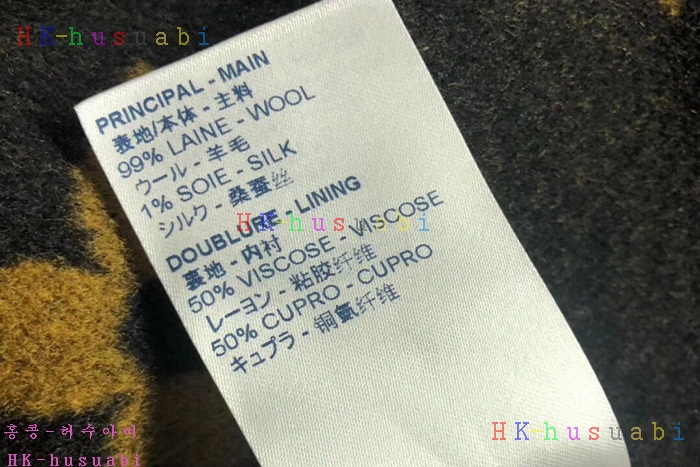 HK-husuabi
PRINCIPAL - MAIN
表地/本体 - 主料
99% LAINE - WOOL
ウール - 羊毛
1% SOIE - SILK
シルク - 桑蚕丝
HK-husuabi
DOUBLURE - LINING
裏地 - 内衬
50% VISCOSE - VISCOSE
レーヨン - 粘胶纤维
50% CUPRO - CUPRO
キュプラ - 铜氨纤维
홍콩-허수아비
HK-husuabi
HK-husuabi